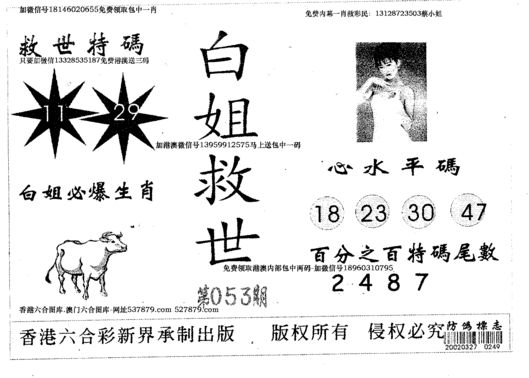 加微信号18146020655免费领取包中一肖
免费内幕一肖救彩民: 13128723503蔡小姐
救世特碼
只要加微信13328535187免费溶溪送三码
11 29
白姐救世
加港澳微信号13959912575马上送包中一码
心水平碼
18 23 30 47
白姐必爆生肖
百分之百特碼尾數
免费领取港澳内部包中两码-加微信号18960310795
2 4 8 7
第053期
香港六合图库.澳门六合图库-网址537879.com 527879.com
香港六合彩新界承制出版 版权所有 侵权必究
防偽標志
20020327 0249